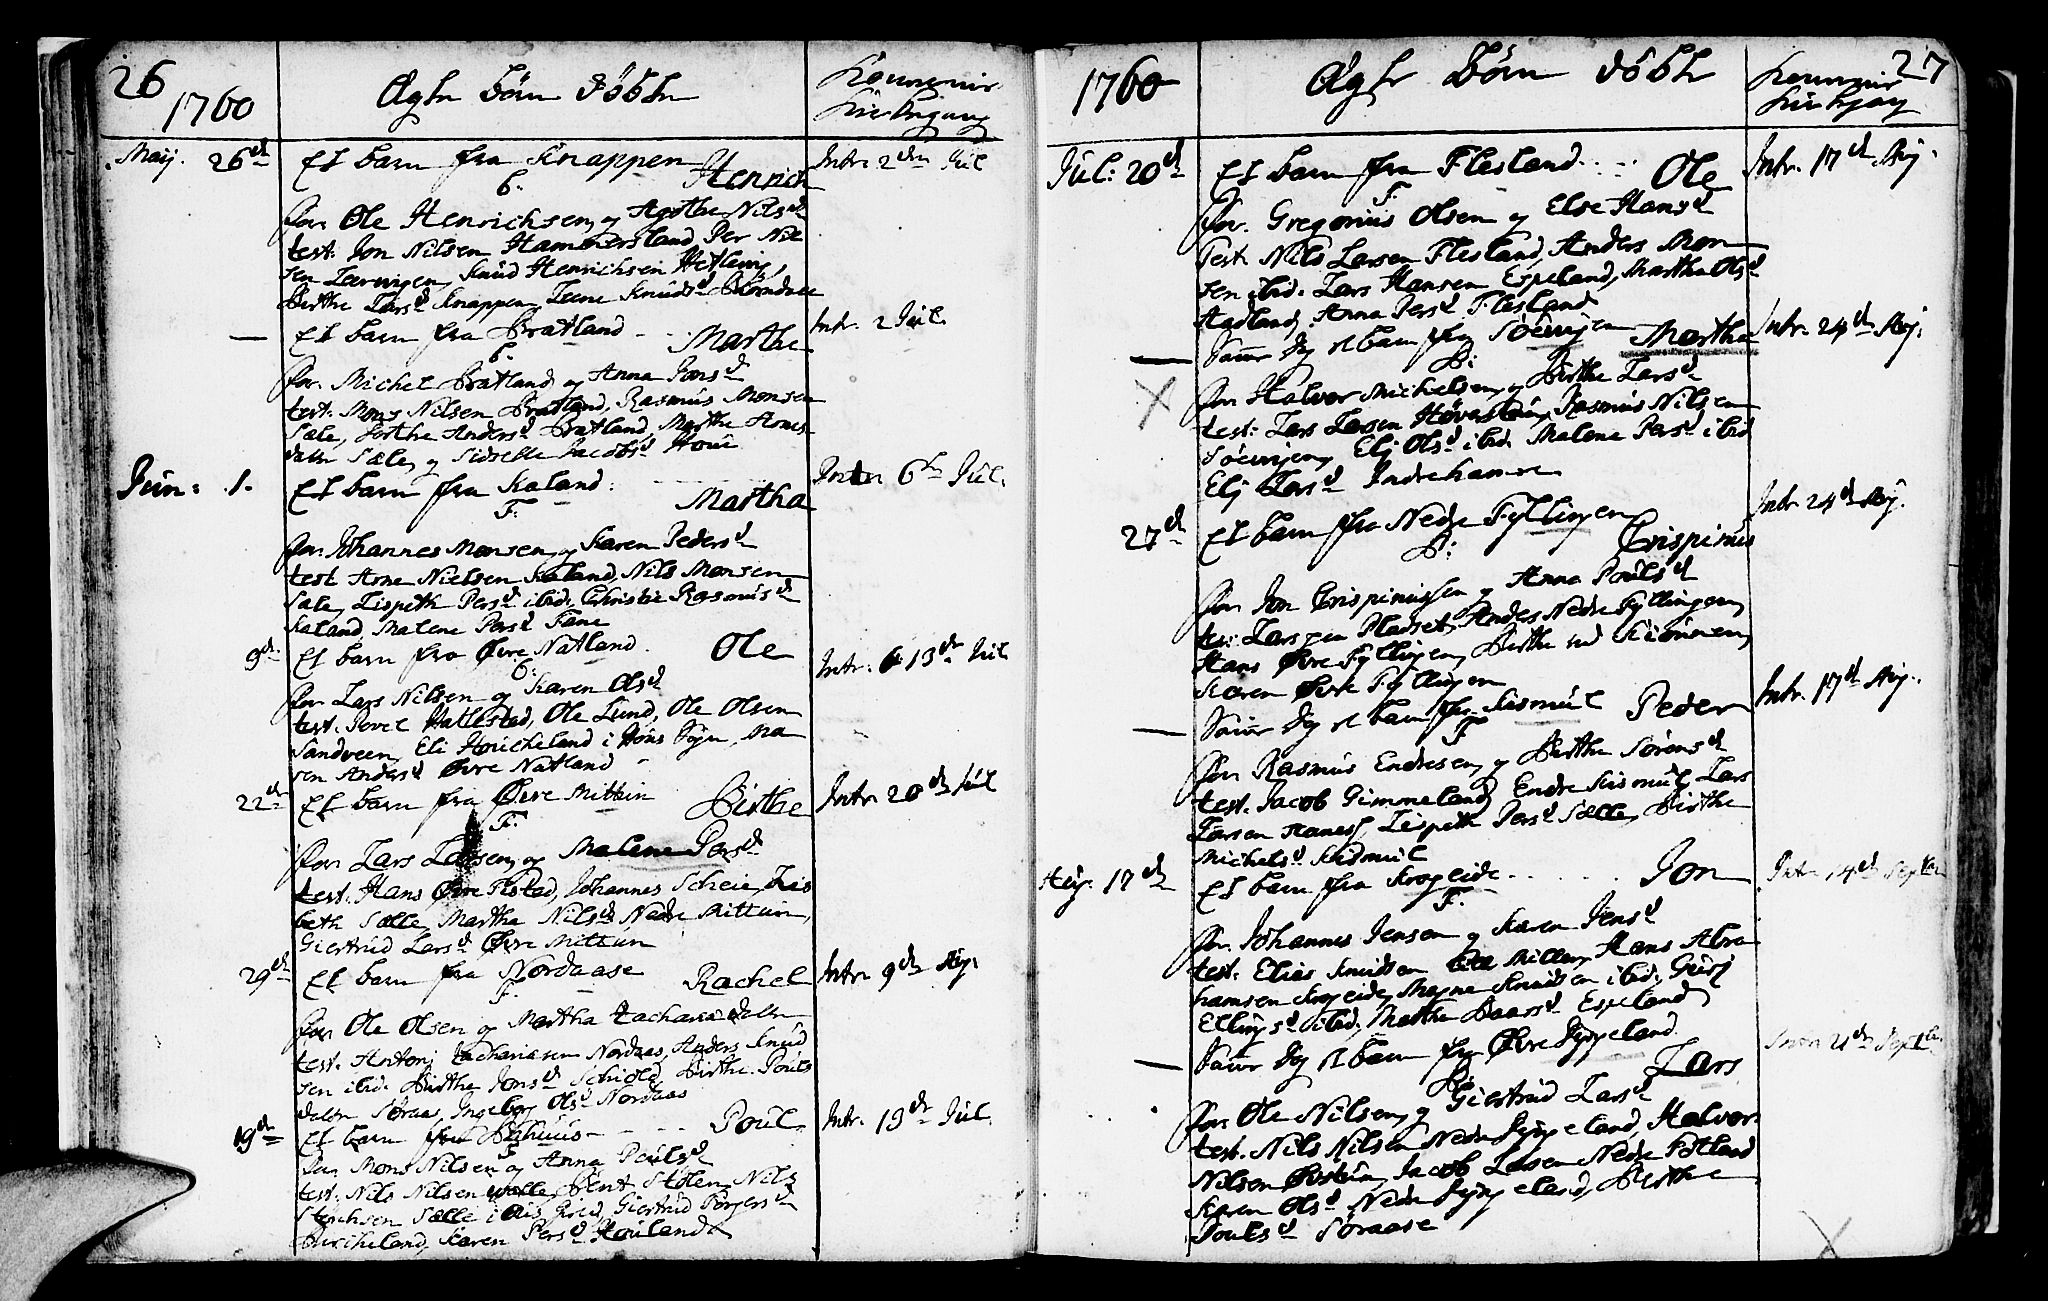 26
1760
Ægte børn döbte
Konernis
Kirckegang
Maij. 26de
Et barn fra Knappen
Henrich
F.
For. Ole Henrichsen og Agathe Nilsd
test: Jon Nilsen Hammersland, Per Nil
sen, Knud Henrichsen
Birthe Larsd Knappen, Lene Knudsd
Intr. 2den Jul
— Et barn fra Bratland
Marthe
For. Michel Bratland og Anna Jonsd
test. Mons Nilsen Bratland, Rasmus Monsen
Sæle, Birthe Andersd Bratland, Marthe Arnes
datr Sæle, og Sidselle Jacobsd Houe
Intr. 2 Jul.
Jun: 1.
Et barn fra Kaland.
Martha
F.
For. Johannes Monsen og Karen Pedersd
test. Arne Nielsen Kaland, Nils Monsen
Sæle, Lispeth Persd ibid. Christie Rasmusd
Kaland, Malene Persd Fane
Intr. 6te Jul.
9de
Et barn fra Øvre Natland.
Ole
For. Lars Nilsen og Karen Olsd
test. Povel Hatlestad, Ole Lund, Ole Olsen
Sandveen, Eli i Hous Sogn, Ma
ren Andersd Øvre Natland
Intr. 13de Jul
22de
Et barn fra Øvre Mittun
Birthe
F.
For. Lars Larsen og Malene Persd
test. Hans Øvre Titlestad, Johannes Scheie, Lis
beth Sælle, Martha Nilsd Nedre Mittun,
Giertrud Larsd Øvre Mittun
Intr. 20de Jul
29de
Et barn fra Nordaase
Rachel
F.
For. Ole Olsen og Martha Zachariædatr
test. Antonj Zachariasen Nordaas, Anders Knud
sen ibid. Birthe Jonsd Schiold, Birthe Pouls
datr Søraas, Ingeborg Olsd Nordaas
Intr. 9de Aug.
19de
Et barn fra
Poul
F.
For. Mons Nilsen og Anna Poulsd
test. Nils Nilsen, Bent Stolen, Nils
Sælle, Giertrud
Birckeland, Karen Persd Houland
Intr. 19de Jul.
27
1760
Ægte børn döbte
Konernis
Kirkegang
Jul: 20de
Et barn fra Flesland
Ole
F.
For. Gregorius Olsen og Else Hansd
Test. Nils Larsen Flesland, Anders Mon
sen ibid. Lars Hansen Espeland, Martha Olsd
Aadland, Anna Persd Flesland
Intr. 17de Aug.
— Samme Dag et barn fra
Martha
B:
For. Halvor Michelsen og Birthe Larsd
test: Lars Larsen, Rasmus Nilsen
Elj Olsd ibid. Malene Persd ibid
Elj Larsd Indrehamre
Intr. 24de Aug.
27de
Et barn fra Nedre Fyllingen
Crispinus
B:
For. Jon Crispinussen og Anna Poulsd
test: Lars paa Pladset, Andes Nedre Fyllingen,
Hans Øvre Fyllingen, Birthe ved
Karen Øvre Fyllingen
Intr. 24de Aug.
— Samme Dag et barn fra Kismul
Peder
F.
For. Rasmus Endresen og Birthe Sørensd
test. Jacob Gimmeland, Endre Kismul, Lars
Larsen, Lispeth Persd Sælle, Birthe
Michelsd Kismul
Intr. 17de Aug.
Aug. 17de
Et barn fra Krogeide
Jon
F.
For. Johannes Jensen og Karen Jensd
test. Elias Knudsen Milde, Hans Abra
hamsen Krogeide, Magne Knudsen ibid. Guri
Ellingsd ibid, Marthe Baarsd Espeland
Intr. 14de Septembr
— Samme Dag et barn fra Øvre
Lars
B:
For. Ole Nilsen og Giertrud Larsd
test. Nils Nilsen Nedre, Halvor
Nilsen, Jacob Larsen Nedre
Karen Olsd Nedre, Birthe
Poulsd Søraase
Intr. 21de Septbr.